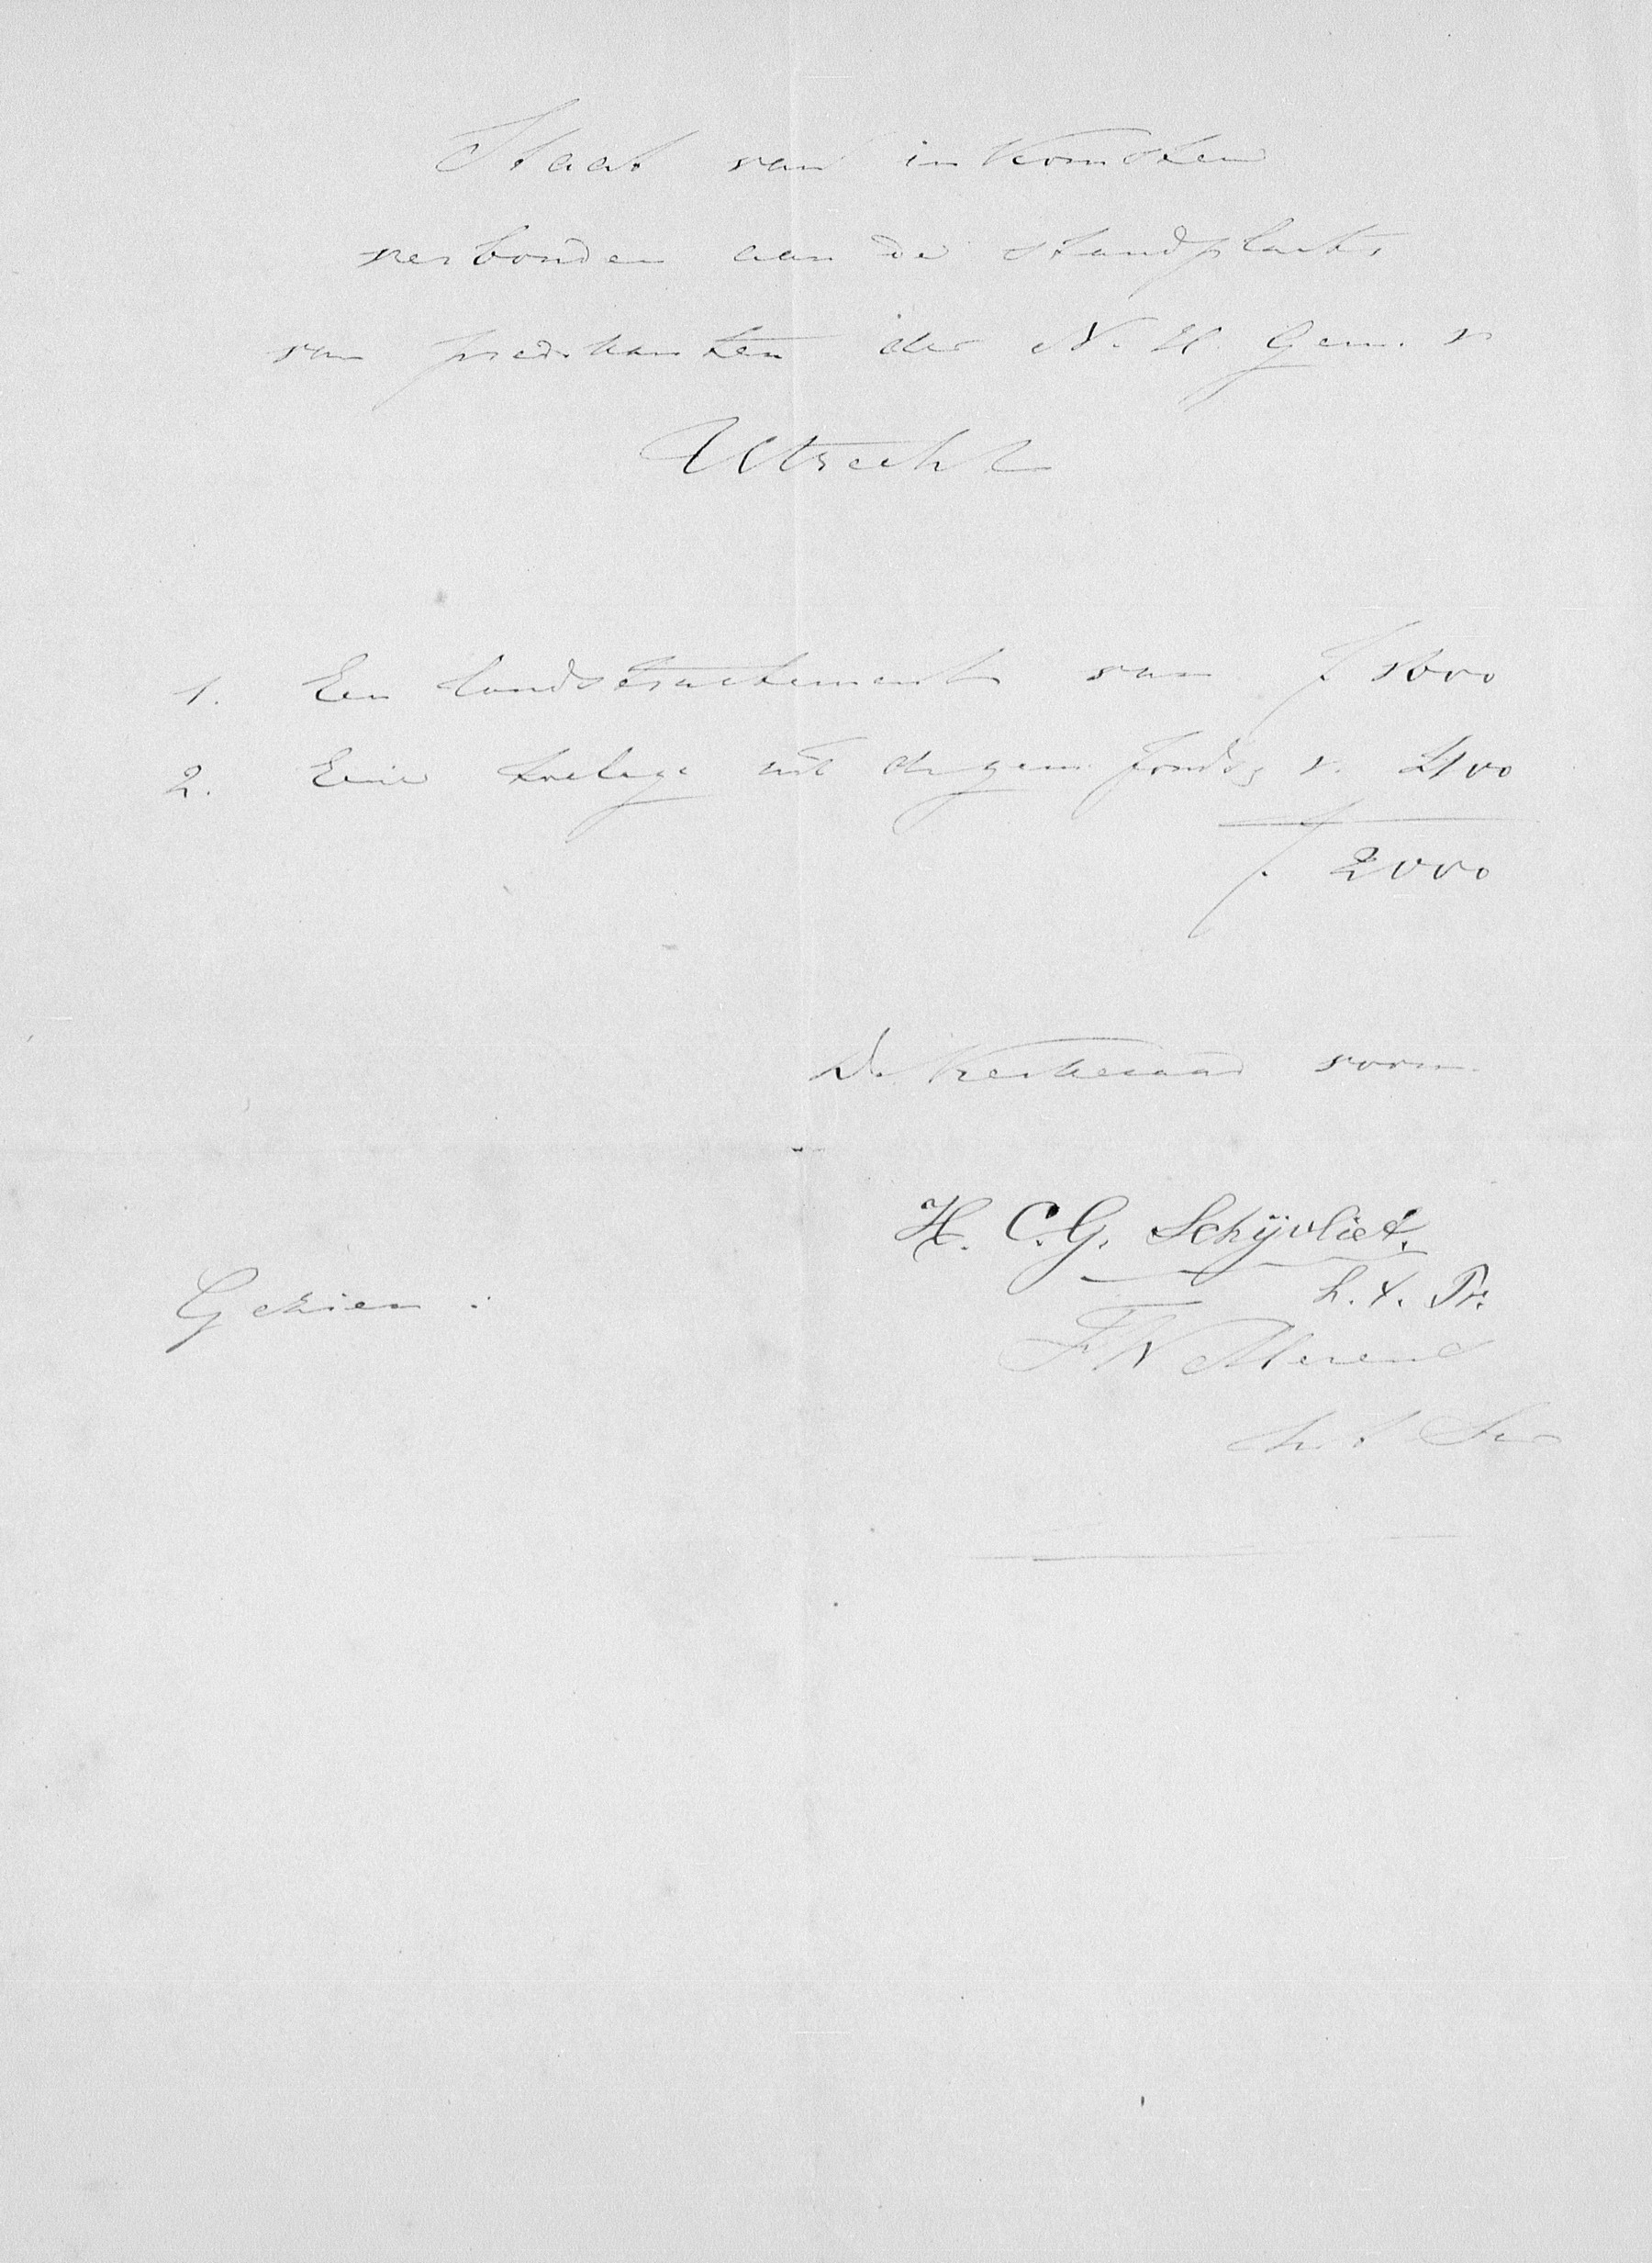 Staat van inkomsten
verbonden aan de standplaats
van predikanten der N. H. Gem. v
Utrecht
1. Een landstractement van f 1600
2. Eene toelage uit de gem. fonds v. 400
f. 2000
De Kerkeraad voorn.
H. C. G. Schijvliet.
h. t. Pr.
Gezien :
F N
h. t. Scr